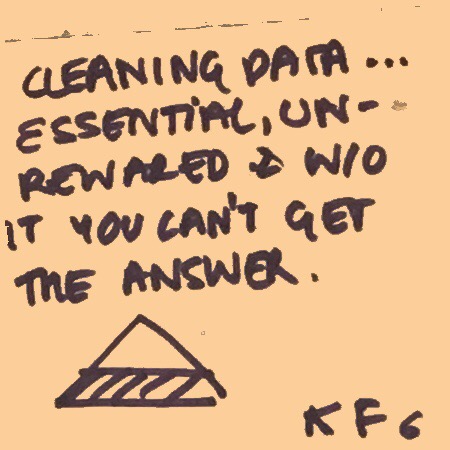 CLEANING DATA...
ESSENTIAL, UN-
REWARED & W/O
IT YOU CAN'T GET
THE ANSWER.
KF6